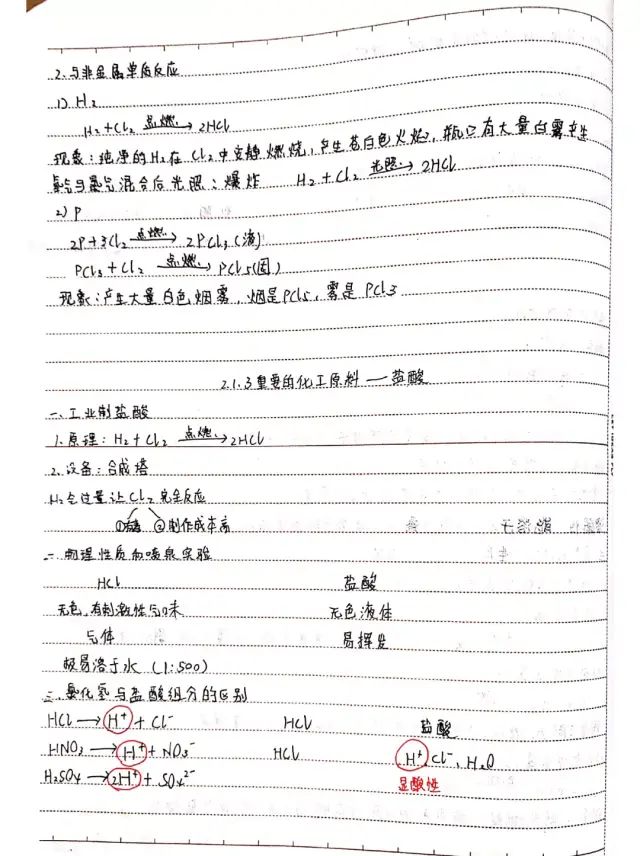 2.与非金属单质反应
1) H₂
H₂+Cl₂ 点燃→ 2HCl
现象:纯净的H₂在Cl₂中安静燃烧,产生苍白色火焰,瓶口有大量白雾产生
氢气与氯气混合后光照:爆炸 H₂+Cl₂ 光照→ 2HCl
2) P
2P+3Cl₂ 点燃→ 2PCl₃(液)
PCl₃+Cl₂ 点燃→ PCl₅(固)
现象:产生大量白色烟雾,烟是PCl₅,雾是PCl₃
2.1.3重要的化工原料—盐酸
一、工业制盐酸
1.原理:H₂+Cl₂ 点燃→2HCl
2.设备:合成塔
H₂会过量让Cl₂完全反应
①有毒 ②制作成本高
二、物理性质和喷泉实验
HCl 盐酸
无色,有刺激性气味 无色液体
气体 易挥发
极易溶于水(1:500)
三、氯化氢与盐酸组分的区别
HCl→H⁺+Cl⁻ HCl 盐酸
HNO₃→H⁺+NO₃⁻ HCl H⁺,Cl⁻,H₂O
H₂SO₄→2H⁺+SO₄²⁻ 显酸性